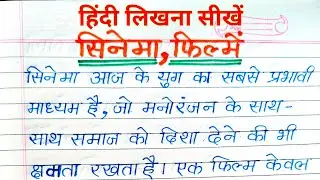 हिंदी लिखना सीखें
सिनेमा,फिल्में
सिनेमा आज के युग का सबसे प्रभावी
माध्यम है, जो मनोरंजन के साथ-
साथ समाज को दिशा देने की भी
क्षमता रखता है। एक फिल्म केवल